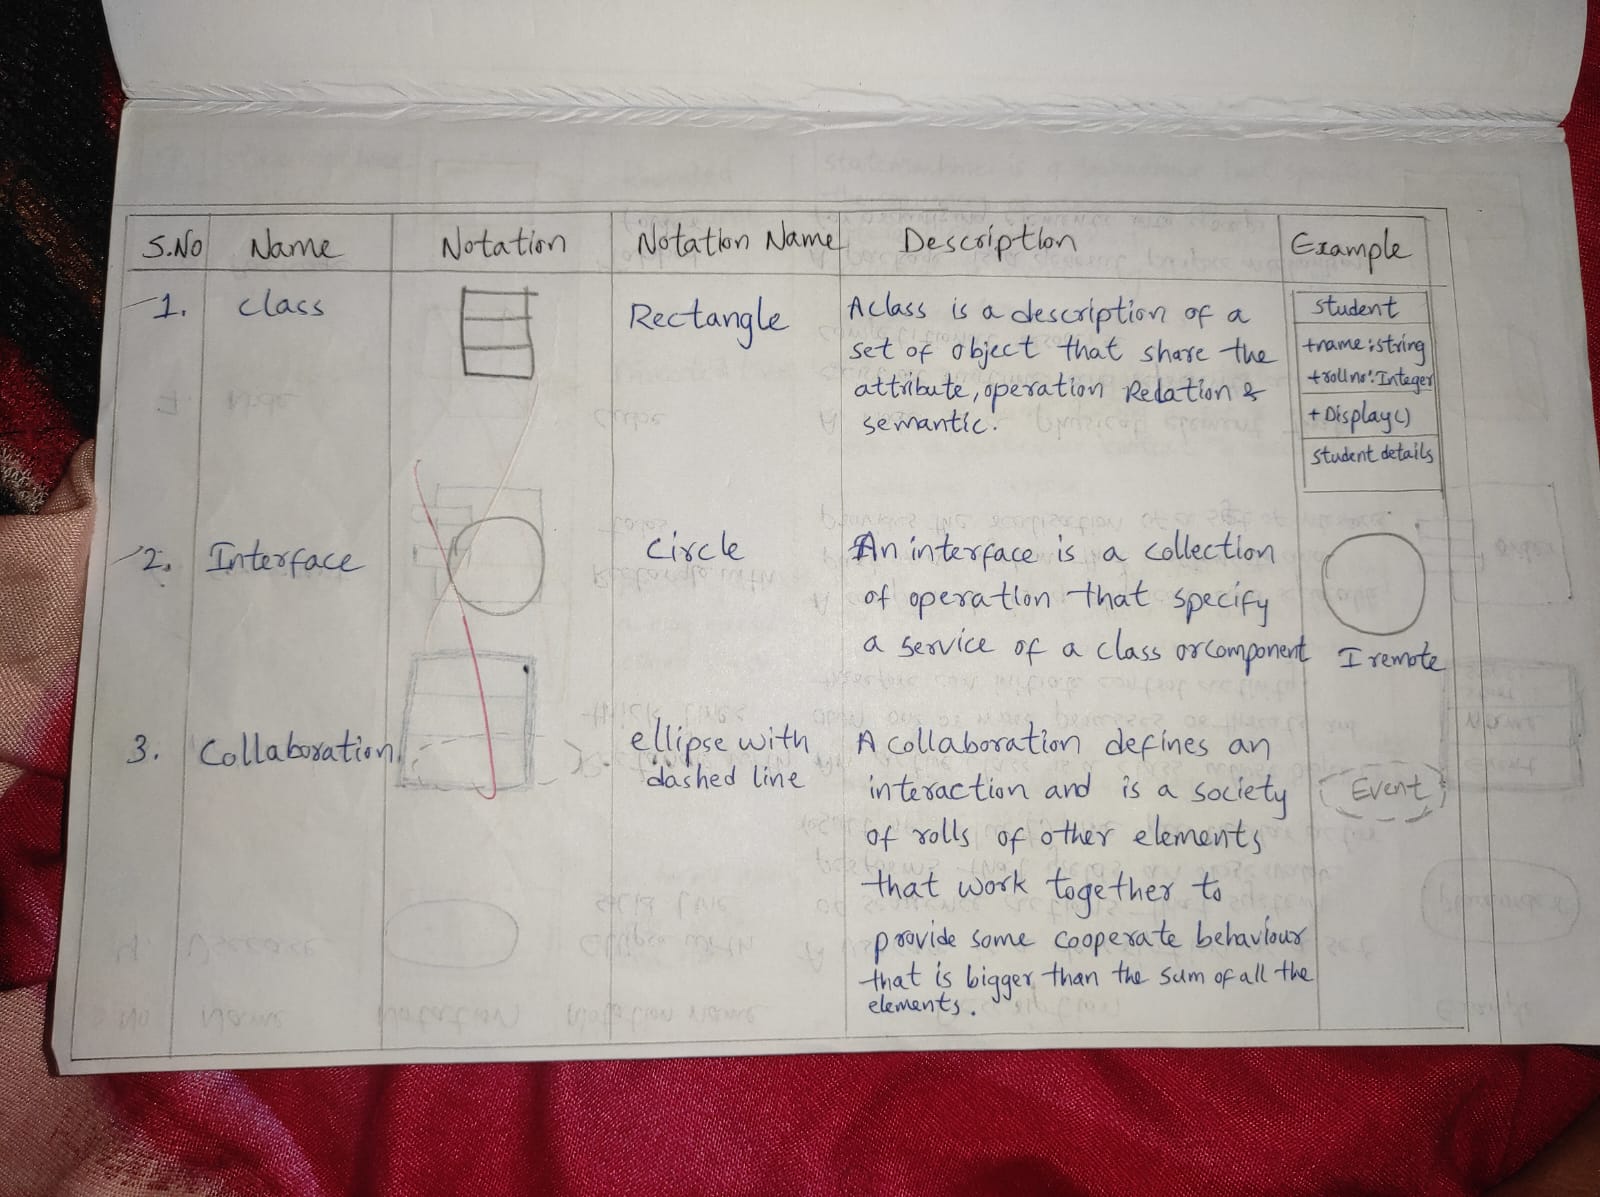 S.No Name Notation Notation Name Description Example
1. class Rectangle A class is a description of a
set of object that share the
attribute, operation Redation &
semantic.
student
+name:string
+rollno:Integer
+Display()
student details
2. Interface circle An interface is a collection
of operation that specify
a service of a class or component
I remote
3. Collaboration ellipse with
dashed line
A collaboration defines an
interaction and is a society
of rolls of other elements
that work together to
provide some cooperate behaviour
that is bigger than the sum of all the
elements.
Event